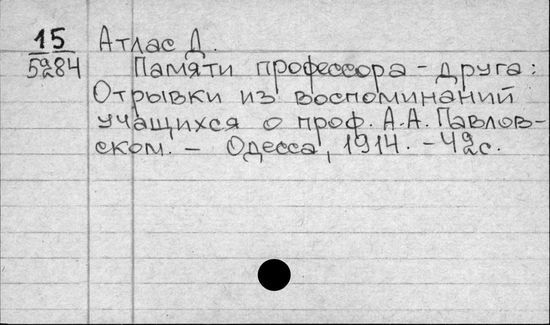 15 Атлас Д.
59284 Памяти профессора - друга:
Отрывки из воспоминаний
учащихся о проф. А.А. Павлов-
ском. - Одесса, 1914. - 49 с.